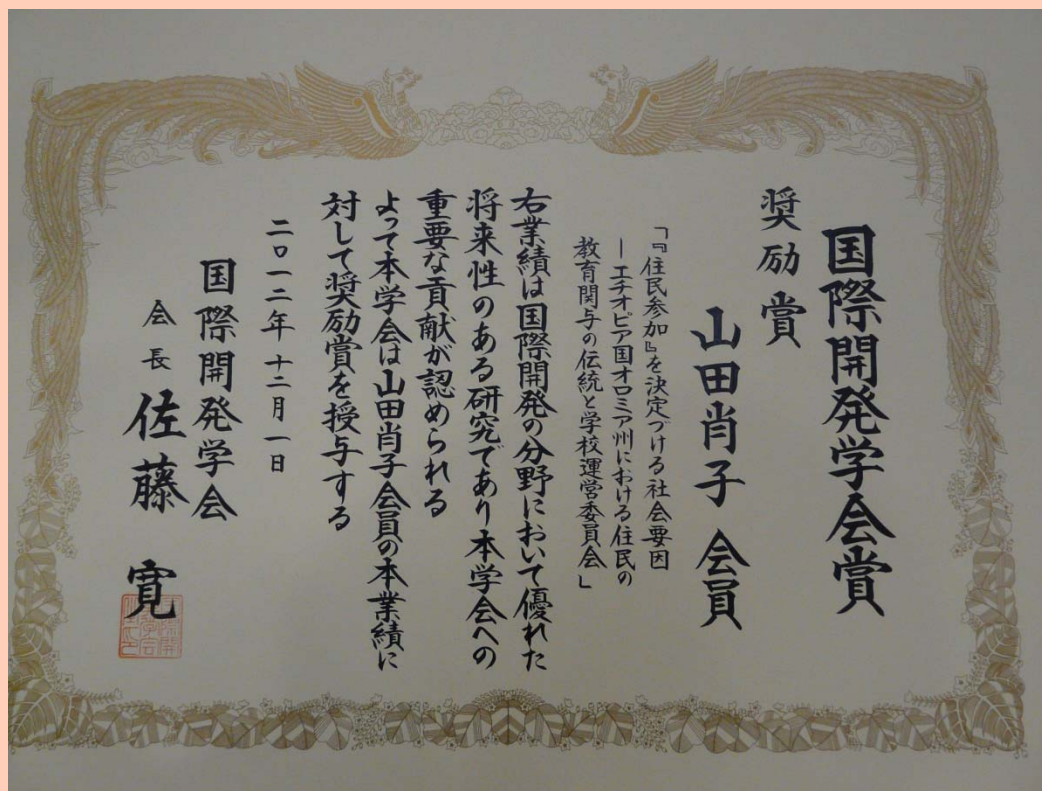 国際開発学会賞
奨励賞
山田肖子 会員
「『住民参加』を決定づける社会要因
―エチオピア国オロミア州における住民の
教育関与の伝統と学校運営委員会」
右業績は国際開発の分野において優れた
将来性のある研究であり本学会への
重要な貢献が認められる
よって本学会は山田肖子会員の本業績に
対して奨励賞を授与する
二〇一二年十二月一日
国際開発学会
会長 佐藤 寛